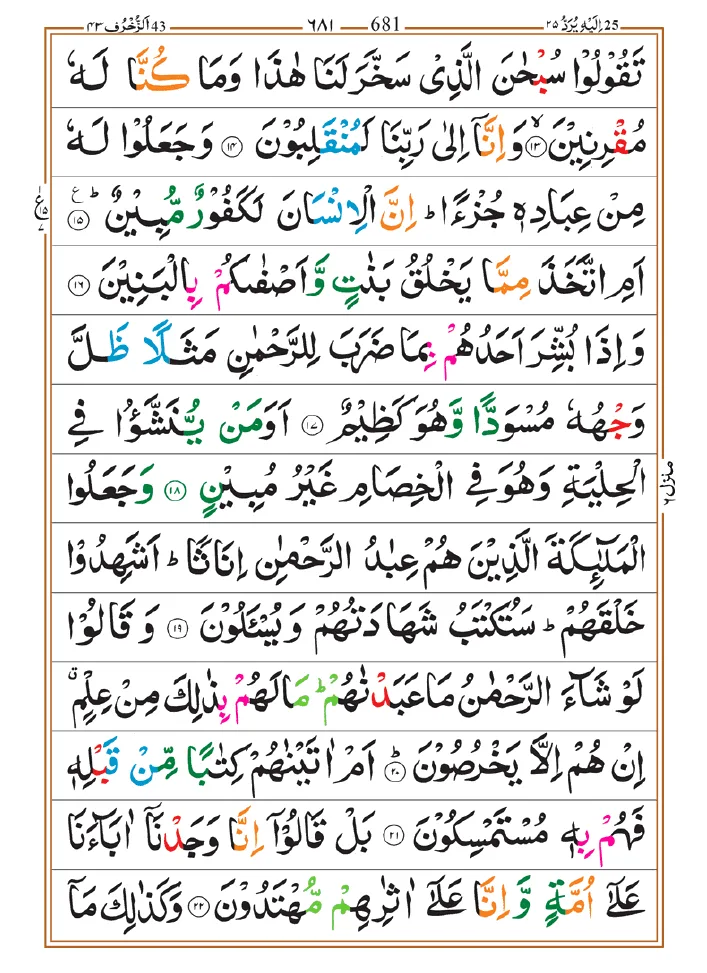 اَلزُّخْرُف 43 ۴۳ 681 ۶۸۱ اِلَيْهِ يُرَدُّ 25 ۲۵
تَقُوْلُوْا سُبْحٰنَ الَّذِىْ سَخَّرَ لَنَا هٰذَا وَمَا كُنَّا لَهٗ
مُقْرِنِيْنَ ۙ‏ ۱۳ وَاِنَّاۤ اِلٰى رَبِّنَا لَمُنْقَلِبُوْنَ ۱۴ وَجَعَلُوْا لَهٗ
مِنْ عِبَادِهٖ جُزْءًا ؕ اِنَّ الْاِنْسَانَ لَكَفُوْرٌ مُّبِيْنٌ ؕ ع ۱۵
ع ۱۵ ۷
اَمِ اتَّخَذَ مِمَّا يَخْلُقُ بَنٰتٍ وَّاَصْفٰٮكُمْ بِالْبَنِيْنَ ۱۶
وَاِذَا بُشِّرَ اَحَدُهُمْ بِمَا ضَرَبَ لِلرَّحْمٰنِ مَثَلًا ظَلَّ
وَجْهُهٗ مُسْوَدًّا وَّهُوَ كَظِيْمٌ ۱۷ اَوَمَنْ يُّنَشَّؤُا فِى
الْحِلْيَةِ وَهُوَ فِى الْخِصَامِ غَيْرُ مُبِيْنٍ ۱۸ وَجَعَلُوا
منزل ۶
الْمَلٰٓئِكَةَ الَّذِيْنَ هُمْ عِبٰدُ الرَّحْمٰنِ اِنَاثًا ؕ اَشَهِدُوْا
خَلْقَهُمْ ؕ سَتُكْتَبُ شَهَادَتُهُمْ وَيُسْـَٔلُوْنَ ۱۹ وَقَالُوْا
لَوْ شَآءَ الرَّحْمٰنُ مَا عَبَدْنٰهُمْ ؕ مَا لَهُمْ بِذٰلِكَ مِنْ عِلْمٍ ۗ
اِنْ هُمْ اِلَّا يَخْرُصُوْنَ ؕ ۲۰ اَمْ اٰتَيْنٰهُمْ كِتٰبًا مِّنْ قَبْلِهٖ
فَهُمْ بِهٖ مُسْتَمْسِكُوْنَ ۲۱ بَلْ قَالُوْۤا اِنَّا وَجَدْنَاۤ اٰبَآءَنَا
عَلٰٓى اُمَّةٍ وَّاِنَّا عَلٰٓى اٰثٰرِهِمْ مُّهْتَدُوْنَ ۲۲ وَكَذٰلِكَ مَاۤ